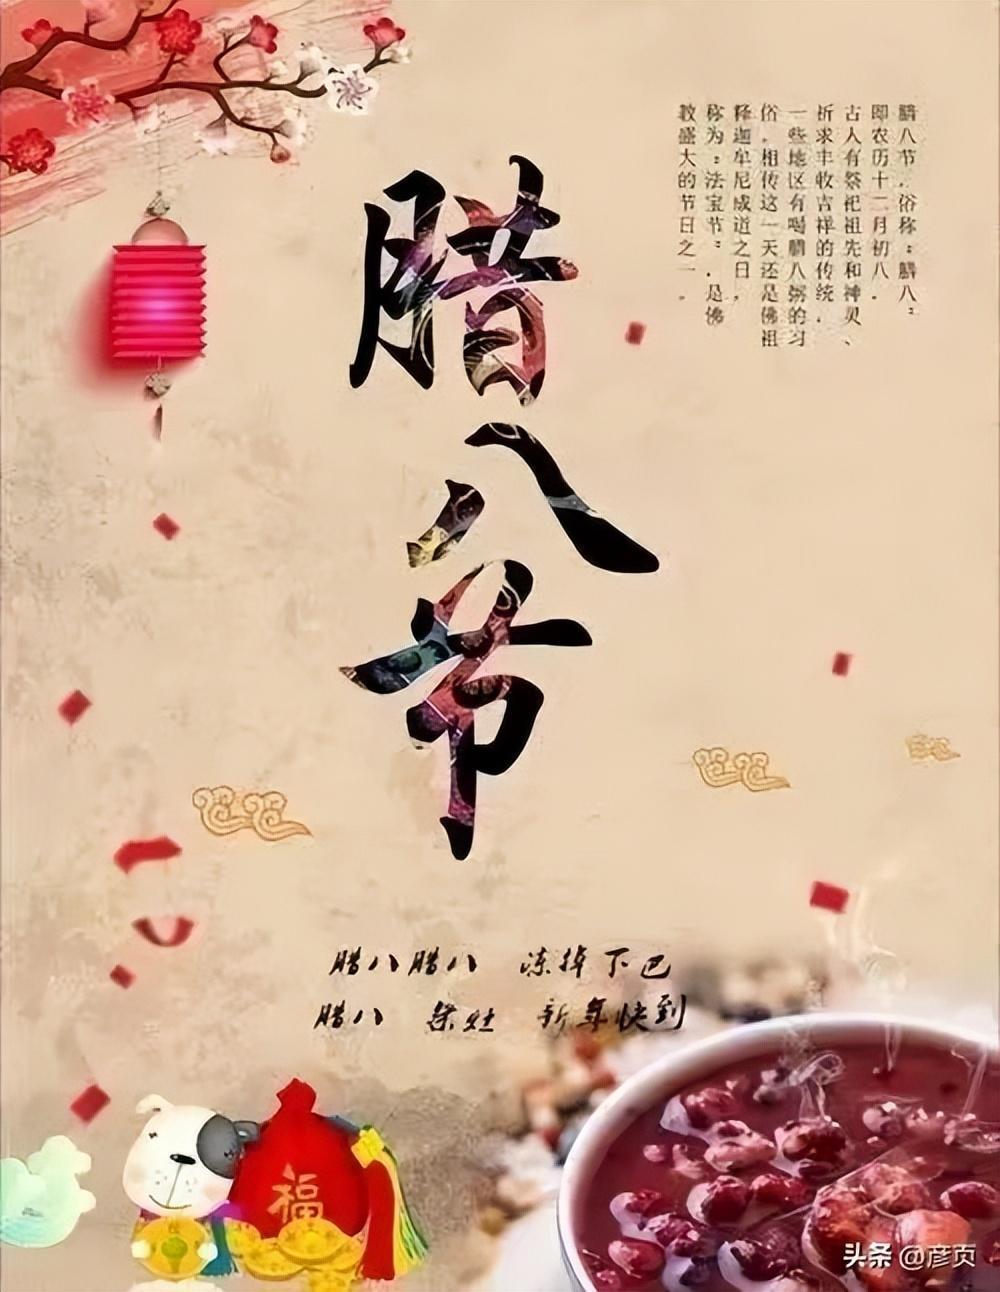 腊八节
腊八节.俗称：腊八：
即农历十二月初八，
古人有祭祀祖先和神灵、
祈求丰收吉祥的传统，
一些地区有喝腊八粥的习
俗。相传这一天还是佛祖
释迦牟尼成道之日，
称为：法宝节：，是佛
教盛大的节日之一。
腊八腊八 冻掉下巴
腊八 祭灶 新年快到
福
头条 @彦页